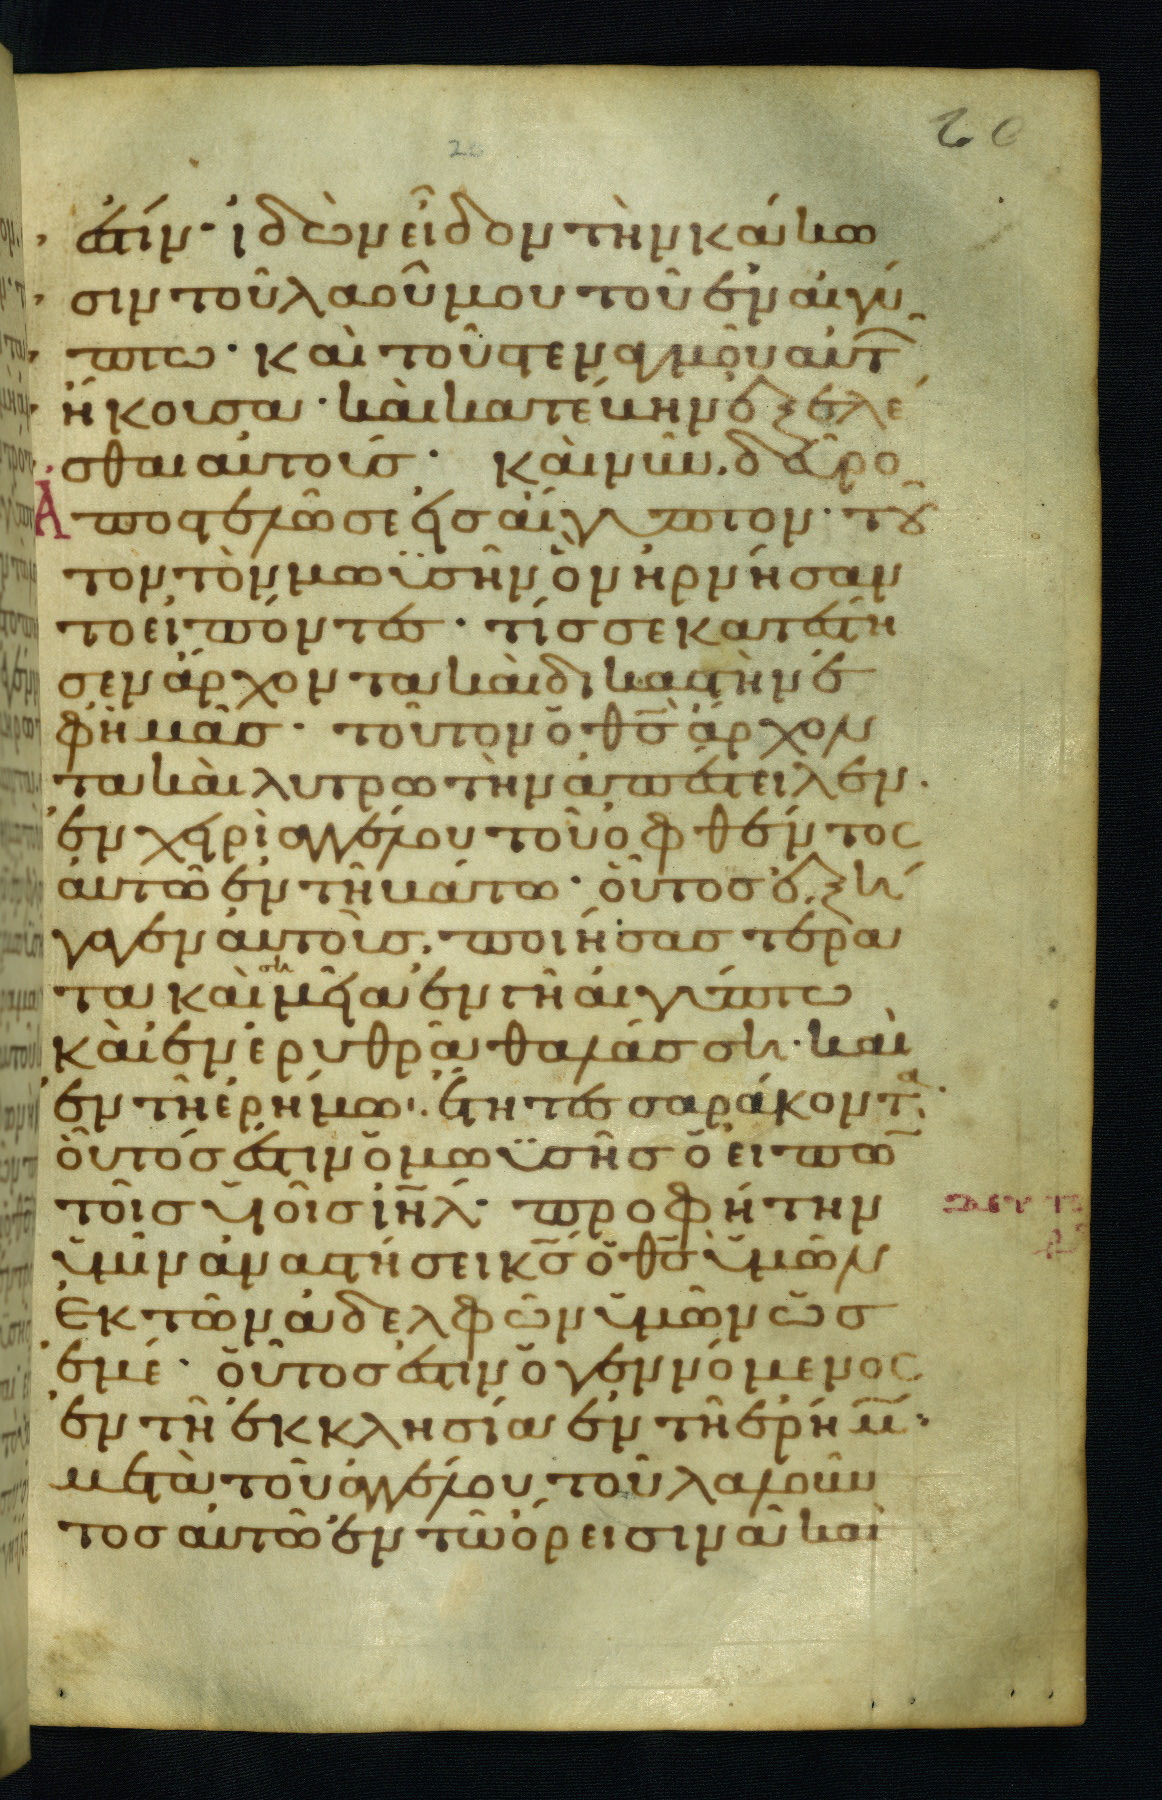 20
20
ἐστίν· ἰδὼν εἶδον τὴν κάκω
σιν τοῦ λαοῦ μου τοῦ ἐν αἰγύ
πτω· καὶ τοῦ στεναγμοῦ αὐτ
ἤκουσα· καὶ κατέβην ἐξελέ
σθαι αὐτούς· καὶ νῦν δεῦρο
Ἀποστελῶ σε εἰς αἴγυπτον· τοῦ
τον τὸν μωϋσῆν ὃν ἠρνήσαν
το εἰπόντες· τίς σε κατέστη
σεν ἄρχοντα καὶ δικαστὴν ἐ
φ ἡμᾶς· τοῦτον ὁ θς ἄρχον
τα καὶ λυτρωτὴν ἀπέστειλεν·
ἐν χειρὶ ἀγγέλου τοῦ ὀφθέντος
αὐτῶ ἐν τῆ βάτω· οὗτος ἐξή
γαγεν αὐτοὺς, ποιήσας τέρα
τα καὶ σημεῖα ἐν γῆ αἰγύπτω
καὶ ἐν ἐρυθρᾶ θαλάσση· καὶ
ἐν τῆ ἐρήμω· ἔτη τεσσαράκοντα·
οὗτός ἐστιν ὁ μωϋσῆς ὁ εἰπὼ
τοῖς υἱοῖς ιηλ· προφήτην
ὑμῖν ἀναστήσει κς ὁ θς ὑμῶν
ἐκ τῶν ἀδελφῶν ὑμῶν ὡς
ἐμέ· οὗτός ἐστιν ὁ γεννόμενος
ἐν τῆ ἐκκλησία ἐν τῆ ἐρήμ·
μετὰ τοῦ ἀγγέλου τοῦ λαλοῦν
τος αὐτῶ ἐν τῶ ὄρει σινᾶ καὶ